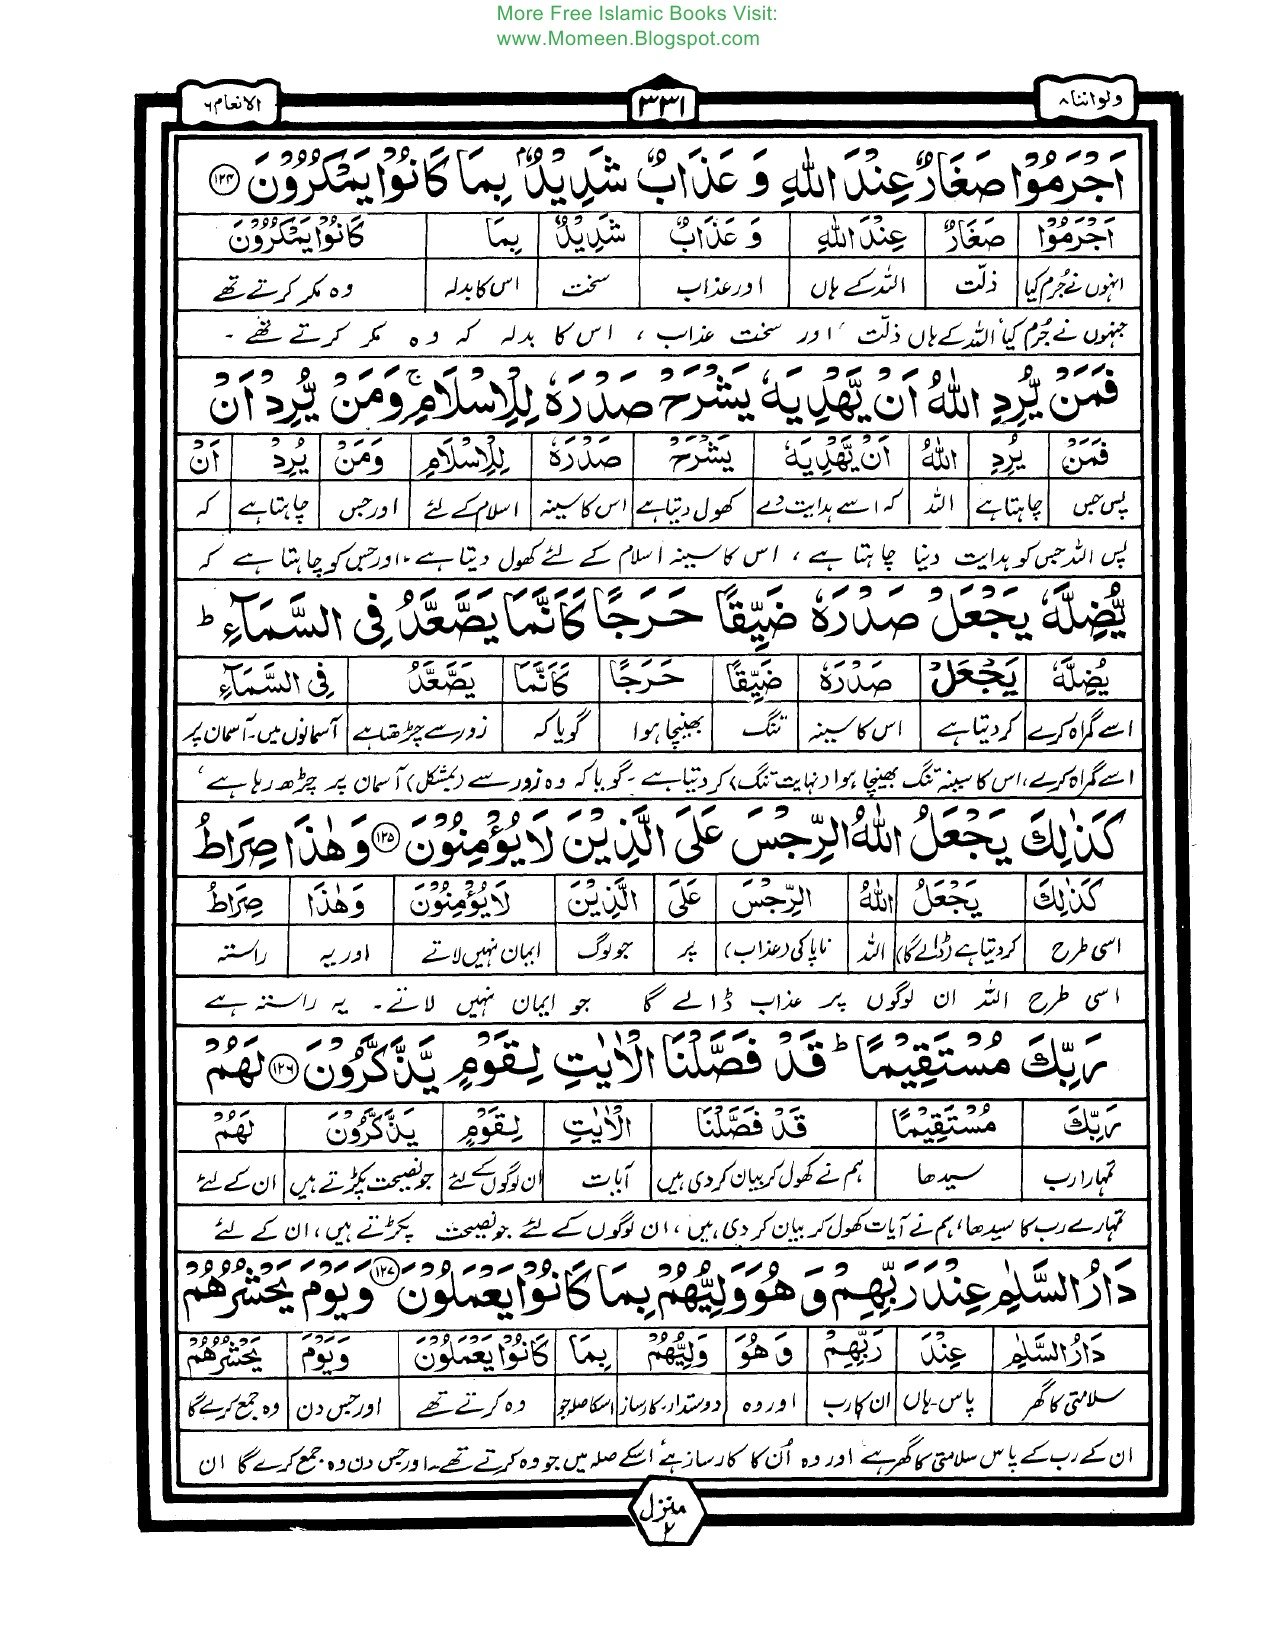 More Free Islamic Books Visit:
www.Momeen.Blogspot.com
ولواننا ٨ ٣٣١ الانعام ٦
اَجْرَمُوْا صَغَارٌ عِنْدَ اللّٰهِ وَ عَذَابٌ شَدِيْدٌۢ بِمَا كَانُوْا يَمْكُرُوْنَ ۝١٢٤
اَجْرَمُوْا صَغَارٌ عِنْدَ اللّٰهِ وَ عَذَابٌ شَدِيْدٌ بِمَا كَانُوْا يَمْكُرُوْنَ
انہوں نے جُرم کیا ذلّت اللہ کے ہاں اور عذاب سخت اس کا بدلہ وہ مکر کرتے تھے
جنہوں نے جُرم کیا اللہ کے ہاں ذلّت اور سخت عذاب ، اس کا بدلہ کہ وہ مکر کرتے تھے ۔
فَمَنْ يُّرِدِ اللّٰهُ اَنْ يَّهْدِيَهٗ يَشْرَحْ صَدْرَهٗ لِلْاِسْلَامِ ۚ وَمَنْ يُّرِدْ اَنْ
فَمَنْ يُرِدِ اللّٰهُ اَنْ يَّهْدِيَهٗ يَشْرَحْ صَدْرَهٗ لِلْاِسْلَامِ وَمَنْ يُرِدْ اَنْ
پس جس چاہتا ہے اللہ کہ اسے ہدایت دے کھول دیتا ہے اس کا سینہ اسلام کے لئے اور جس چاہتا ہے کہ
پس اللہ جس کو ہدایت دینا چاہتا ہے ، اس کا سینہ اسلام کے لئے کھول دیتا ہے ، اور جس کو چاہتا ہے کہ
يُّضِلَّهٗ يَجْعَلْ صَدْرَهٗ ضَيِّقًا حَرَجًا كَاَنَّمَا يَصَّعَّدُ فِى السَّمَآءِ ؕ
يُضِلَّهٗ يَجْعَلْ صَدْرَهٗ ضَيِّقًا حَرَجًا كَاَنَّمَا يَصَّعَّدُ فِى السَّمَآءِ
اسے گمراہ کرے کر دیتا ہے اس کا سینہ تنگ بھینچا ہوا گویا کہ زور سے چڑھتا ہے آسمانوں میں۔آسمان پر
اسے گمراہ کرے، اس کا سینہ تنگ بھینچا ہوا (نہایت تنگ) کر دیتا ہے ۔ گویا کہ وہ زور سے (بمشکل) آسمان پر چڑھ رہا ہے ،
كَذٰلِكَ يَجْعَلُ اللّٰهُ الرِّجْسَ عَلَى الَّذِيْنَ لَا يُؤْمِنُوْنَ ۝١٢٥ وَهٰذَا صِرَاطُ
كَذٰلِكَ يَجْعَلُ اللّٰهُ الرِّجْسَ عَلَى الَّذِيْنَ لَا يُؤْمِنُوْنَ وَهٰذَا صِرَاطُ
اسی طرح کر دیتا ہے (ڈالے گا) اللہ ناپاکی (عذاب) پر جو لوگ ایمان نہیں لاتے اور یہ راستہ
اسی طرح اللہ ان لوگوں پر عذاب ڈالے گا جو ایمان نہیں لاتے۔ یہ راستہ ہے
رَبِّكَ مُسْتَقِيْمًا ؕ قَدْ فَصَّلْنَا الْاٰيٰتِ لِقَوْمٍ يَّذَّكَّرُوْنَ ۝١٢٦ لَهُمْ
رَبِّكَ مُسْتَقِيْمًا قَدْ فَصَّلْنَا الْاٰيٰتِ لِقَوْمٍ يَذَّكَّرُوْنَ لَهُمْ
تمہارا رب سیدھا ہم نے کھول کر بیان کر دی ہیں آیات ان لوگوں کے لئے جو نصیحت پکڑتے ہیں ان کے لئے
تمہارے رب کا سیدھا، ہم نے آیات کھول کر بیان کر دی ہیں ، ان لوگوں کے لئے جو نصیحت پکڑتے ہیں ، ان کے لئے
دَارُ السَّلٰمِ عِنْدَ رَبِّهِمْ وَهُوَ وَلِيُّهُمْ بِمَا كَانُوْا يَعْمَلُوْنَ ۝١٢٧ وَيَوْمَ يَحْشُرُهُمْ
دَارُ السَّلٰمِ عِنْدَ رَبِّهِمْ وَهُوَ وَلِيُّهُمْ بِمَا كَانُوْا يَعْمَلُوْنَ وَيَوْمَ يَحْشُرُهُمْ
سلامتی کا گھر پاس۔ہاں ان کا رب اور وہ دوستدار۔کارساز اسکا صلہ جو وہ کرتے تھے اور جس دن وہ جمع کرے گا
ان کے رب کے پاس سلامتی کا گھر ہے اور وہ اُن کا کارساز ہے اسکے صلہ میں جو وہ کرتے تھے۔ اور جس دن وہ جمع کرے گا ان
منزل ٢